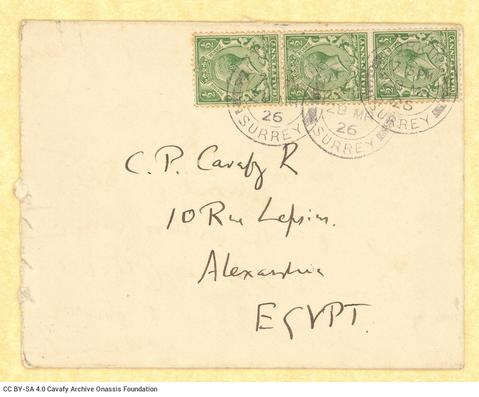 26
SURREY
28 MR
26
SURREY
26
SURREY
C. P. Cavafy R
10 Rue Lepsius.
Alexandria
EGYPT.
CC BY-SA 4.0 Cavafy Archive Onassis Foundation